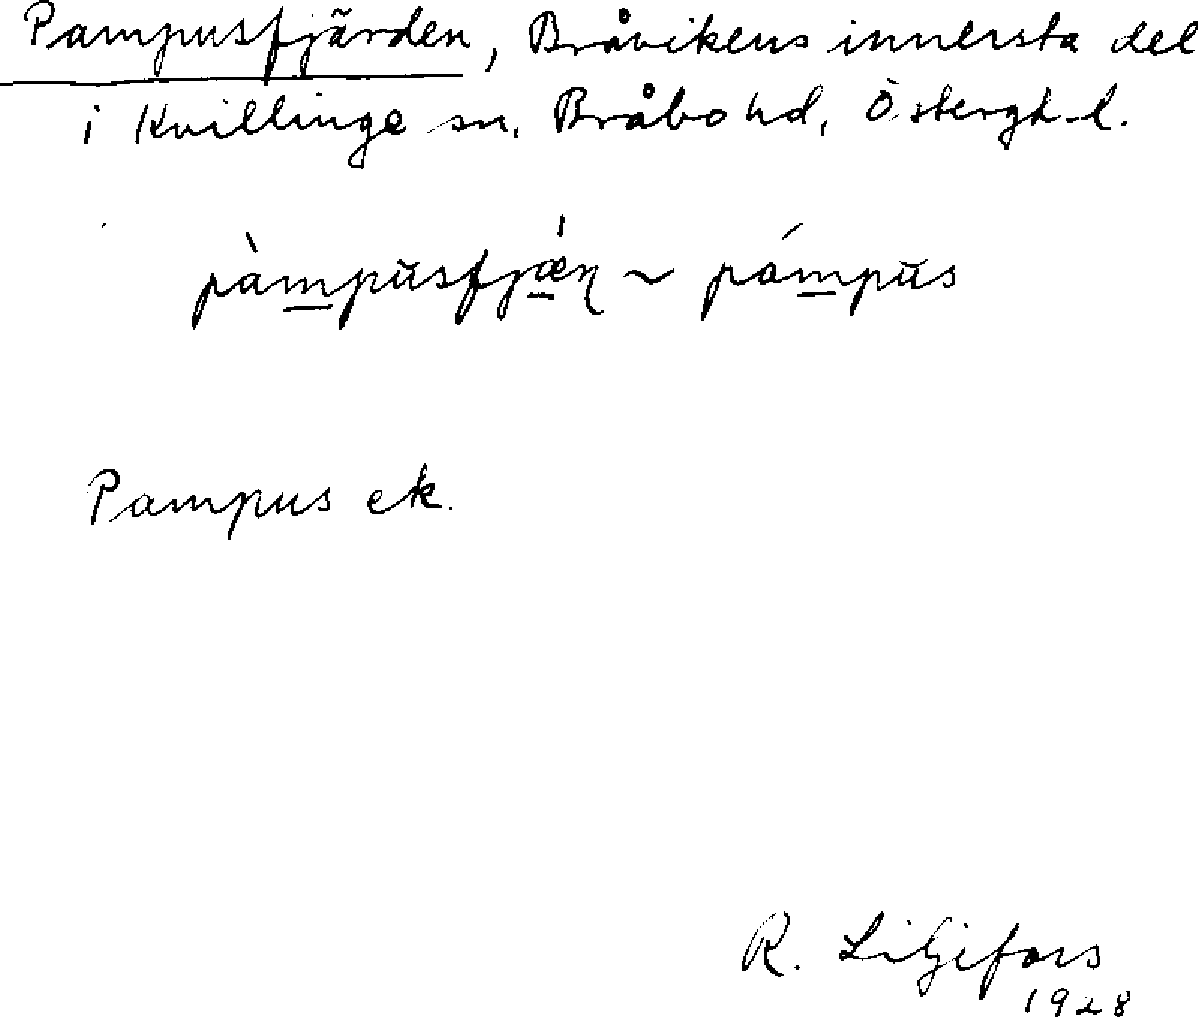 Pampusfjärden, Bråvikens innersta del
i Kvillinge sn, Bråbo hd, Östergtl-l.
pàm̲pŭsfjǽ̲ɳ ~ pám̲pŭs
Pampus ek.
R. Liljefors
1928